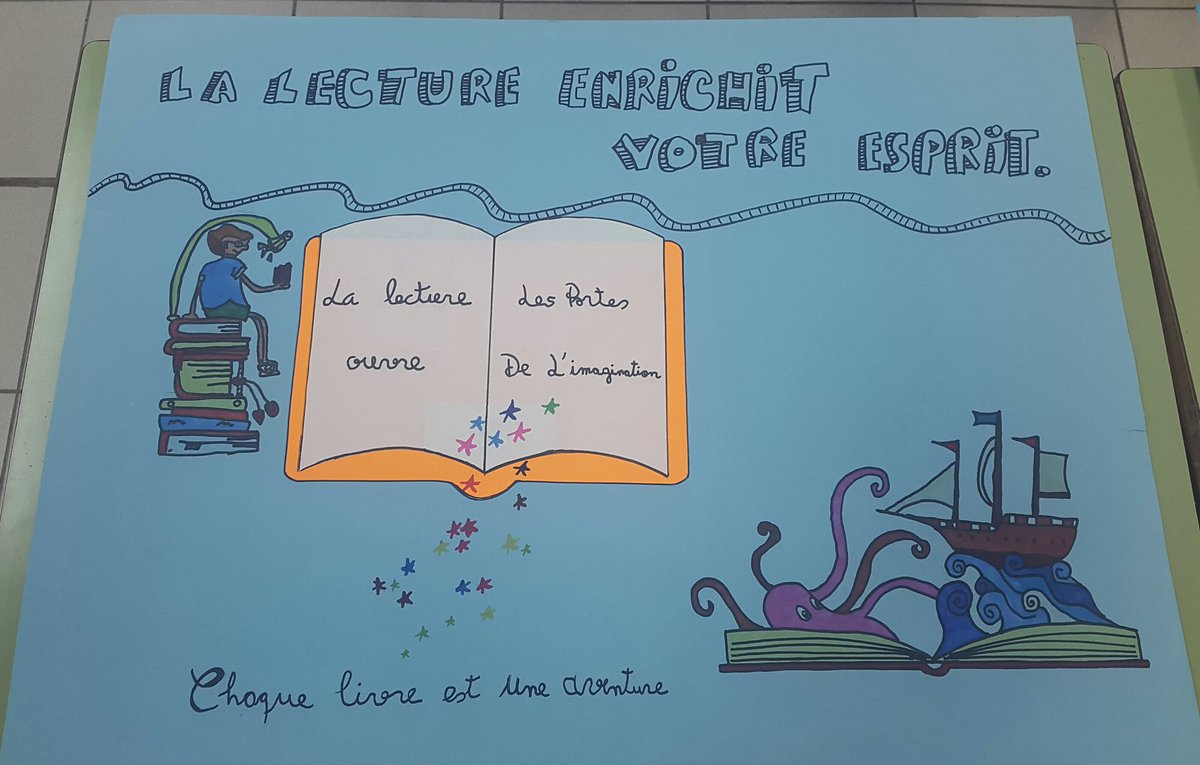 LA LECTURE ENRICHIT
VOTRE ESPRIT.
La lecture
ouvre
Les Portes
De L'imagination
Chaque livre est une aventure